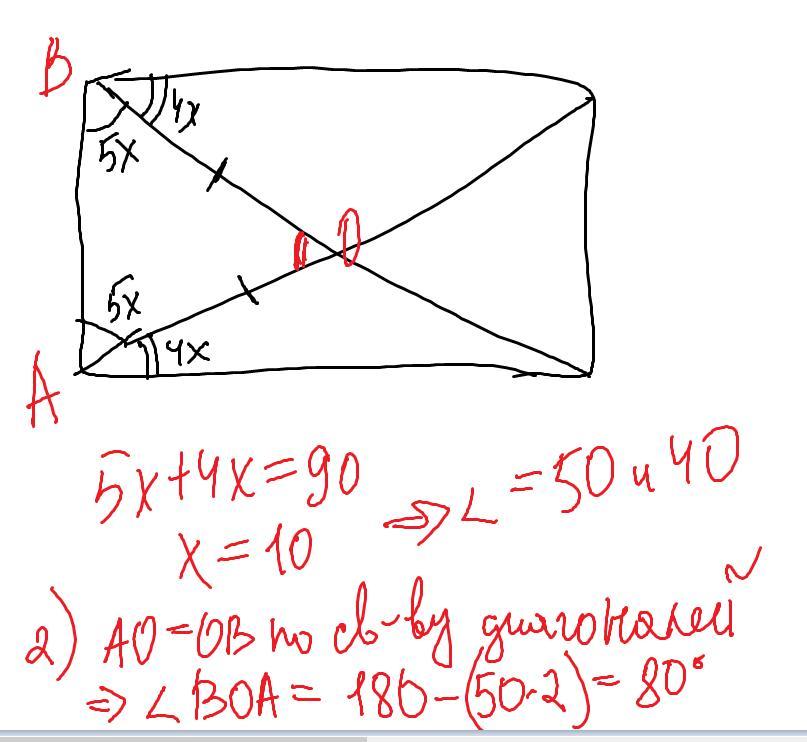 B
4x
5x
O
5x
4x
A
5x+4x=90
x=10 => ∠ =50 и 40
2) AO=OB по св-ву диагоналей
=> ∠BOA= 180-(50·2)=80°